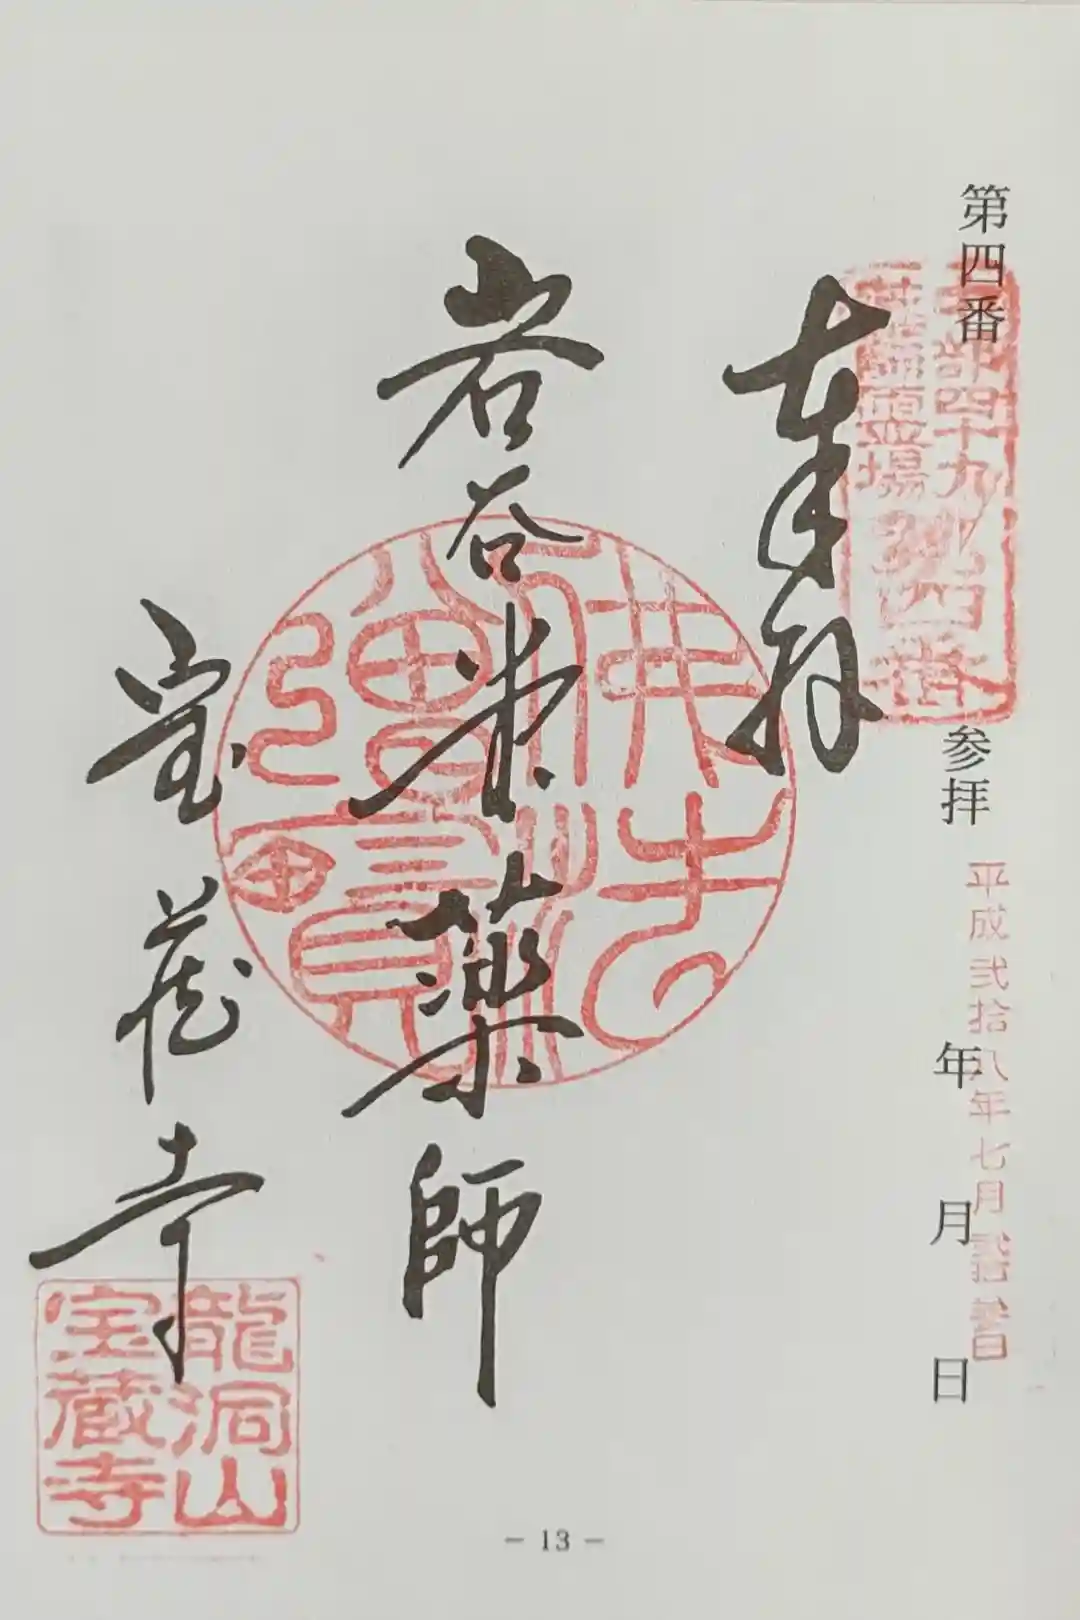 第四番 参拝 年 月 日
平成弐拾八年七月弐拾参日
部四十九
薬師霊場
第四番
奉拝
岩谷堂薬師
宝蔵寺
佛法
僧寶
龍洞山
宝蔵寺
- 13 -